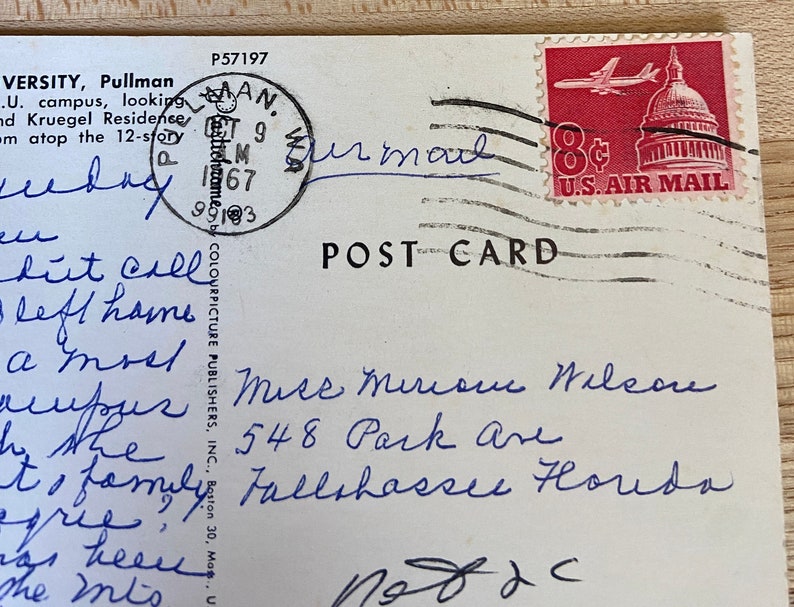 P57197
VERSITY, Pullman
.U. campus, looking
nd Kruegel Residence
om atop the 12-story
PULLMAN, WA
OCT 9
M
1967
99163
air mail
8¢
U.S. AIR MAIL
POST CARD
call
left home
a most
campus
the
family
agree?
has been
the mts
Plastichrome® by COLOURPICTURE PUBLISHERS, INC., Boston 30, Mass., U
Miss Miriam Wilson
548 Park Ave
Tallahassee Florida